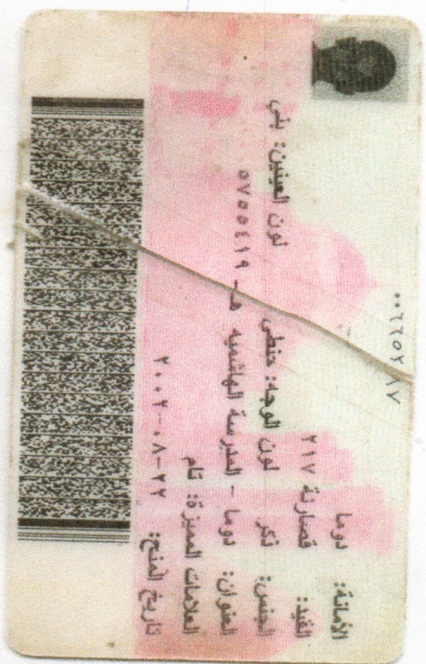 الأمانة: دوما
القيد: قصارنة ٢١٧
الجنس: ذكر لون الوجه: حنطي لون العينين: بني
العنوان: دوما - المدرسة الهاشمية هـ - ٥٧٥٥٤١٩
العلامات المميزة: تام
تاريخ المنح: ٢٢-٠٨-٢٠٠٢